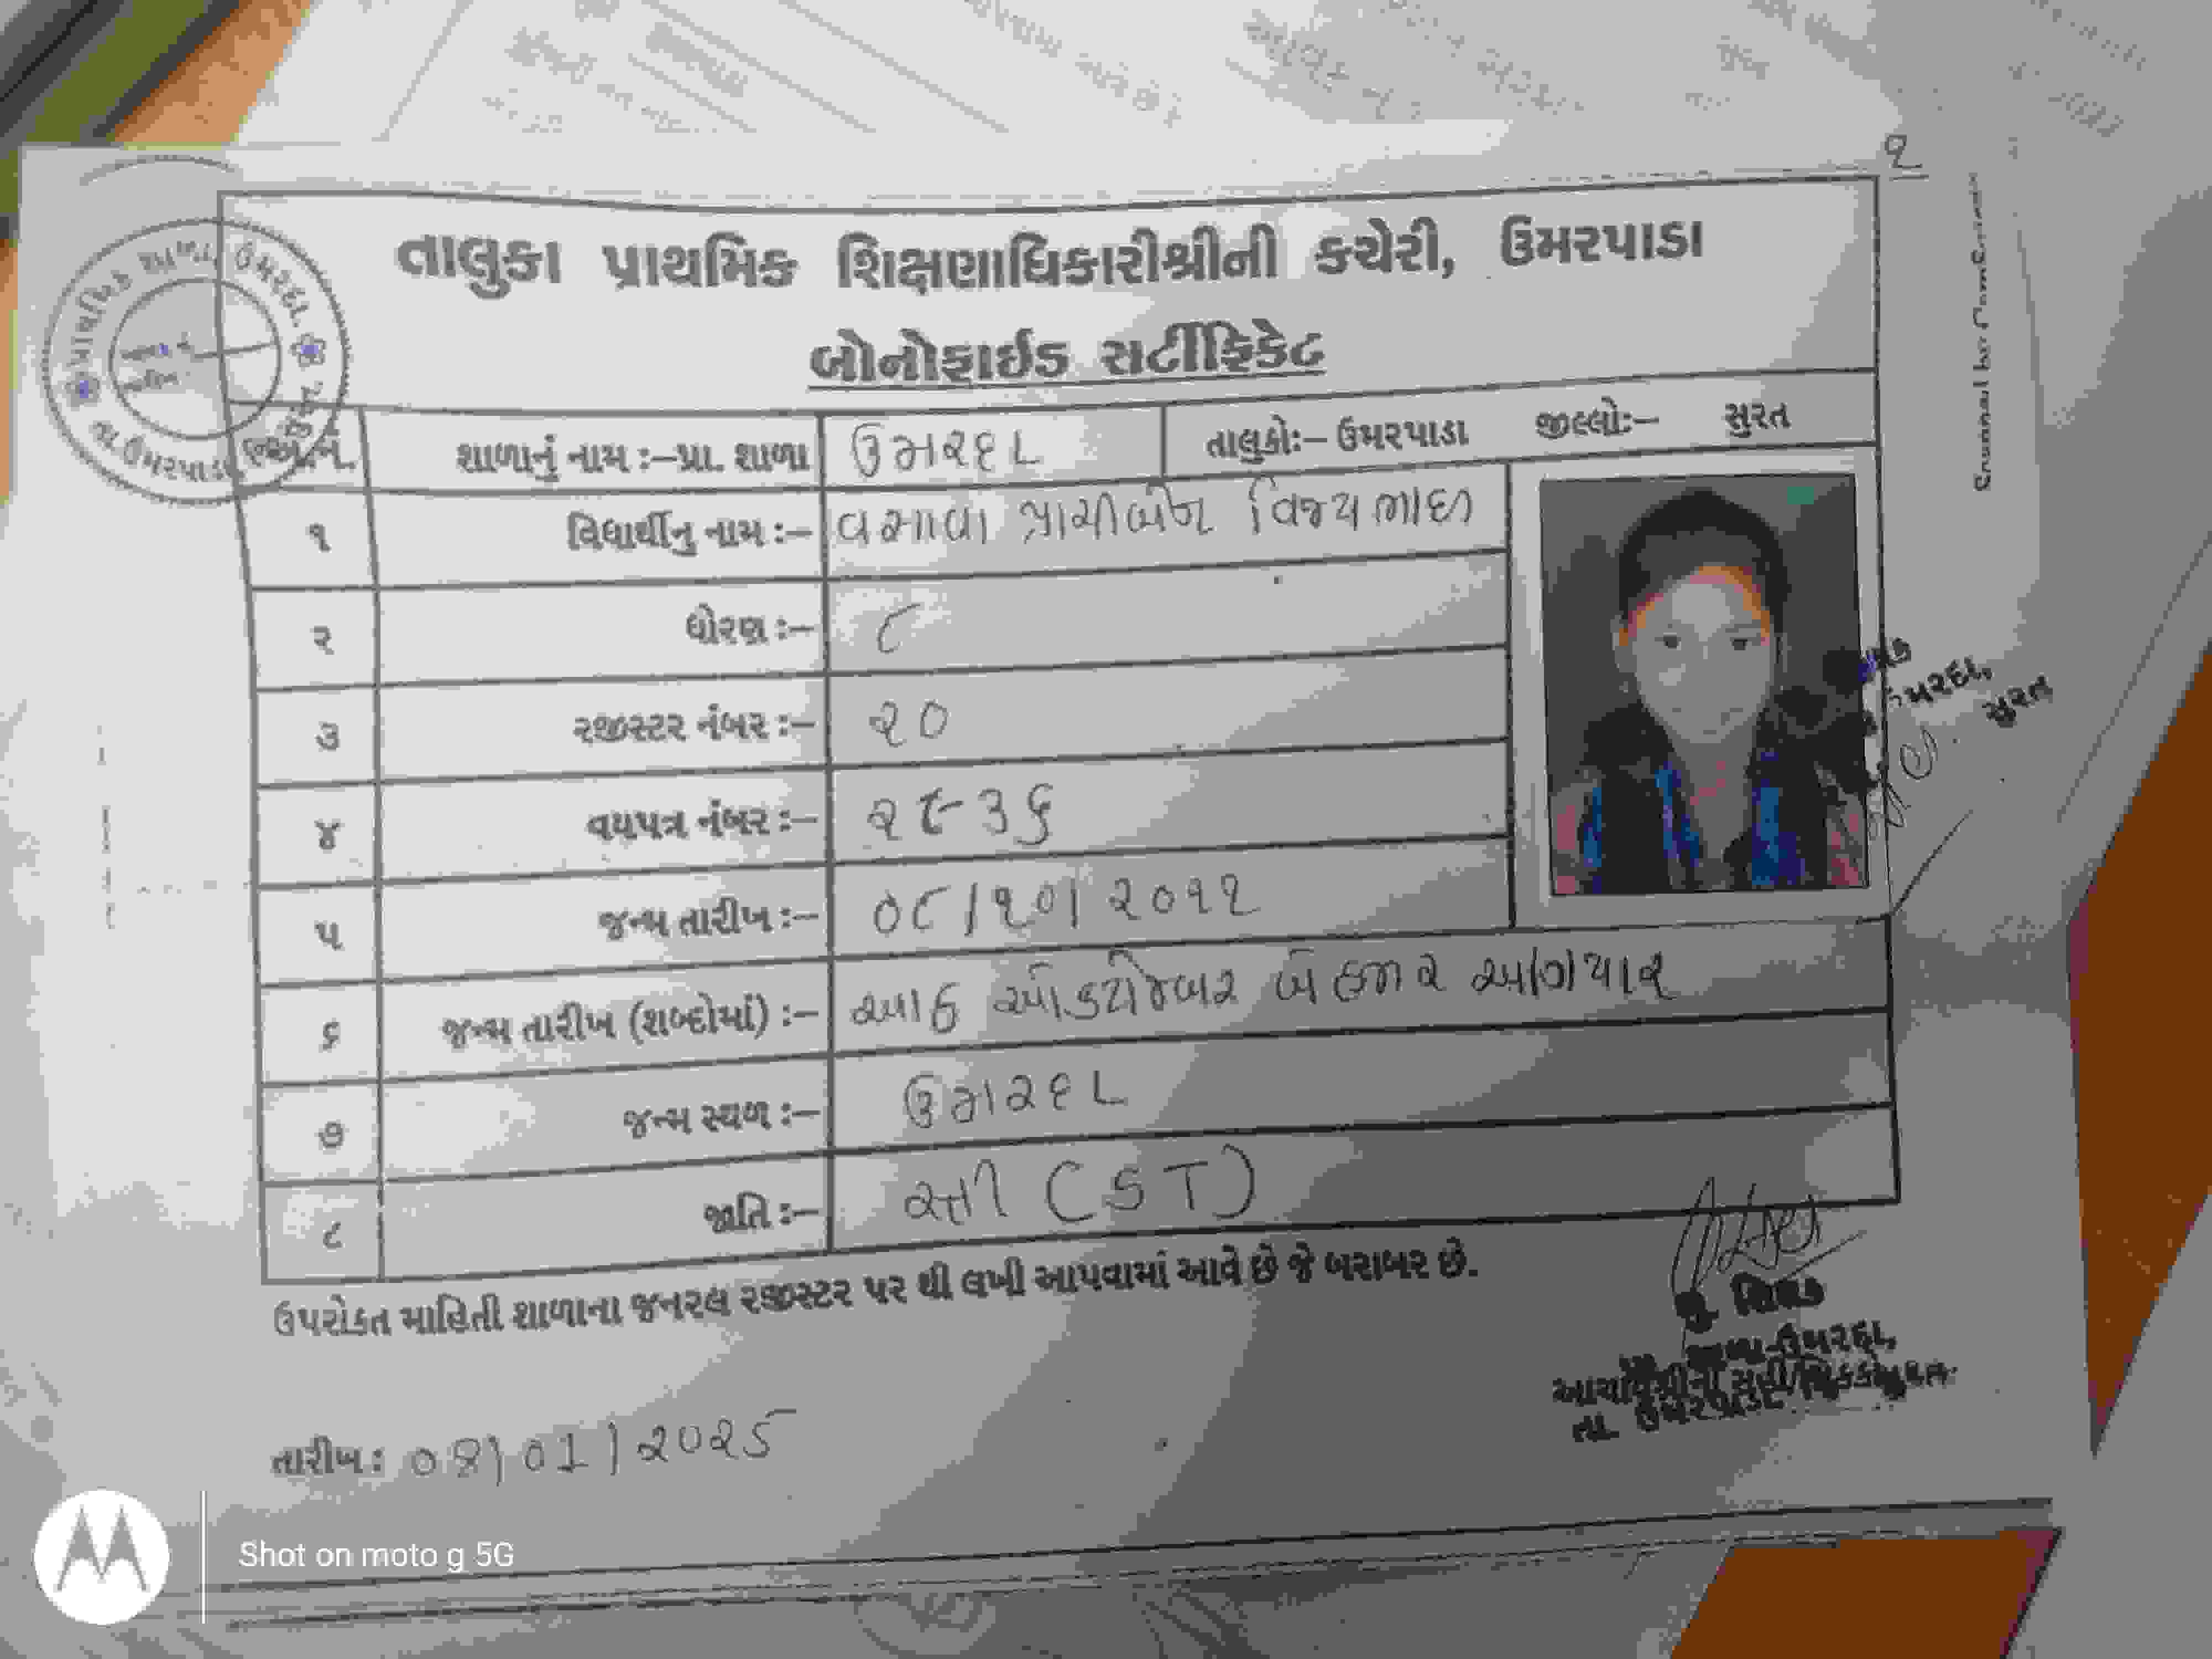 ૧
તાલુકા પ્રાથમિક શિક્ષણાધિકારીશ્રીની કચેરી, ઉમરપાડા
બોનોફાઈડ સર્ટીફિકેટ
અ.નં. શાળાનું નામ :–પ્રા. શાળા ઉમરદા તાલુકોઃ– ઉમરપાડા જીલ્લોઃ– સુરત
૧ વિધાર્થીનુ નામ :– વસાવા પ્રાચીબેન વિજયભાઇ
૨ ધોરણ :– ૮
૩ રજીસ્ટર નંબર :– ૨૦
૪ વયપત્ર નંબર :–
૫ જન્મ તારીખ :– ૦૮/૧૦/૨૦૧૧
૬ જન્મ તારીખ (શબ્દોમાં) :– આઠ ઓકટોમ્બર બે હજાર અગિયાર
૭ જન્મ સ્થળ :– ઉમરદા
૮ જાતિ :– (ST)
ઉપરોકત માહિતી શાળાના જનરલ રજીસ્ટર પર થી લખી આપવામાં આવે છે જે બરાબર છે.
મુ. શિક્ષક
ઉમરદા,
તા. ઉમરપાડા
તારીખ : 0૪/01/૨૦૨૫
Shot on moto g 5G
Scanned by CamScanner
ઉમરદા,
સુરત